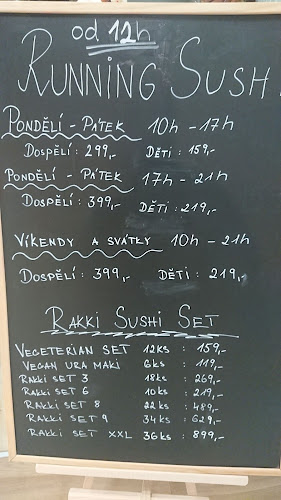 od 12h
RUNNING SUSHI
PONDĚLÍ - PÁTEK 10h - 17h
DOSPĚLÍ : 299,- DĚTI : 159,-
PONDĚLÍ - PÁTEK 17h - 21h
DOSPĚLÍ : 399,- DĚTI : 219,-
VÍKENDY A SVÁTKY 10h - 21h
DOSPĚLÍ : 399,- DĚTI : 219,-
RAKKI SUSHI SET
VEGETERIAN SET 12ks : 159,-
VEGAN URA MAKI 6ks : 119,-
RAKKI SET 3 18ks : 269,-
RAKKI SET 6 10ks : 219,-
RAKKI SET 8 22ks : 489,-
RAKKI SET 9 34ks : 629,-
RAKKI SET XXL 36ks : 899,-